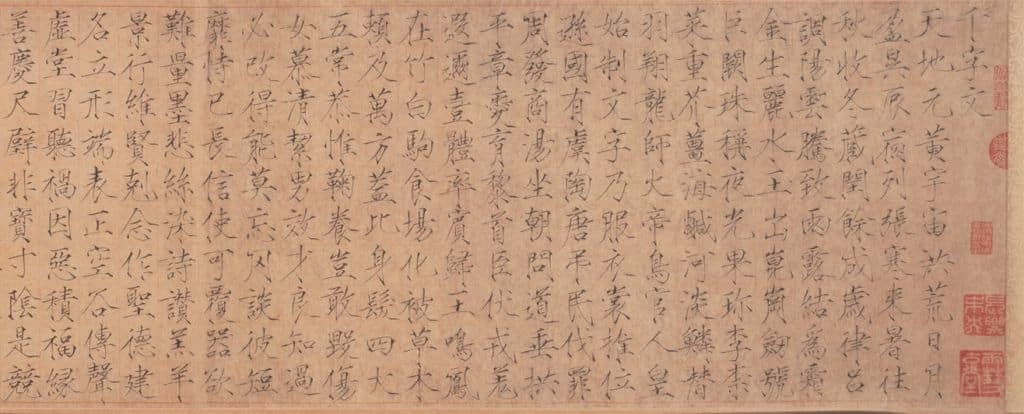 千字文
天地元黃宇宙洪荒日月
盈昃辰宿列張寒来暑往
秋收冬藏閏餘成歲律呂
調陽雲騰致雨露結為霜
金生麗水玉出崑崗劒號
巨闕珠稱夜光果珍李柰
菜重芥薑海鹹河淡鱗潛
羽翔龍師火帝鳥官人皇
始制文字乃服衣裳推位
遜國有虞陶唐弔民伐罪
周發商湯坐朝問道垂拱
平章愛育黎首臣伏戎羌
遐邇壹體率賓歸王鳴鳳
在竹白駒食場化被草木
頼及萬方蓋此身髮四大
五常恭惟鞠養豈敢毀傷
女慕清絜男效才良知過
必改得能莫忘罔談彼短
靡恃己長信使可覆器欲
難量墨悲絲染詩讃羔羊
景行維賢剋念作聖德建
名立形端表正空谷傳聲
虛堂習聽禍因惡積福緣
善慶尺璧非寶寸陰是競